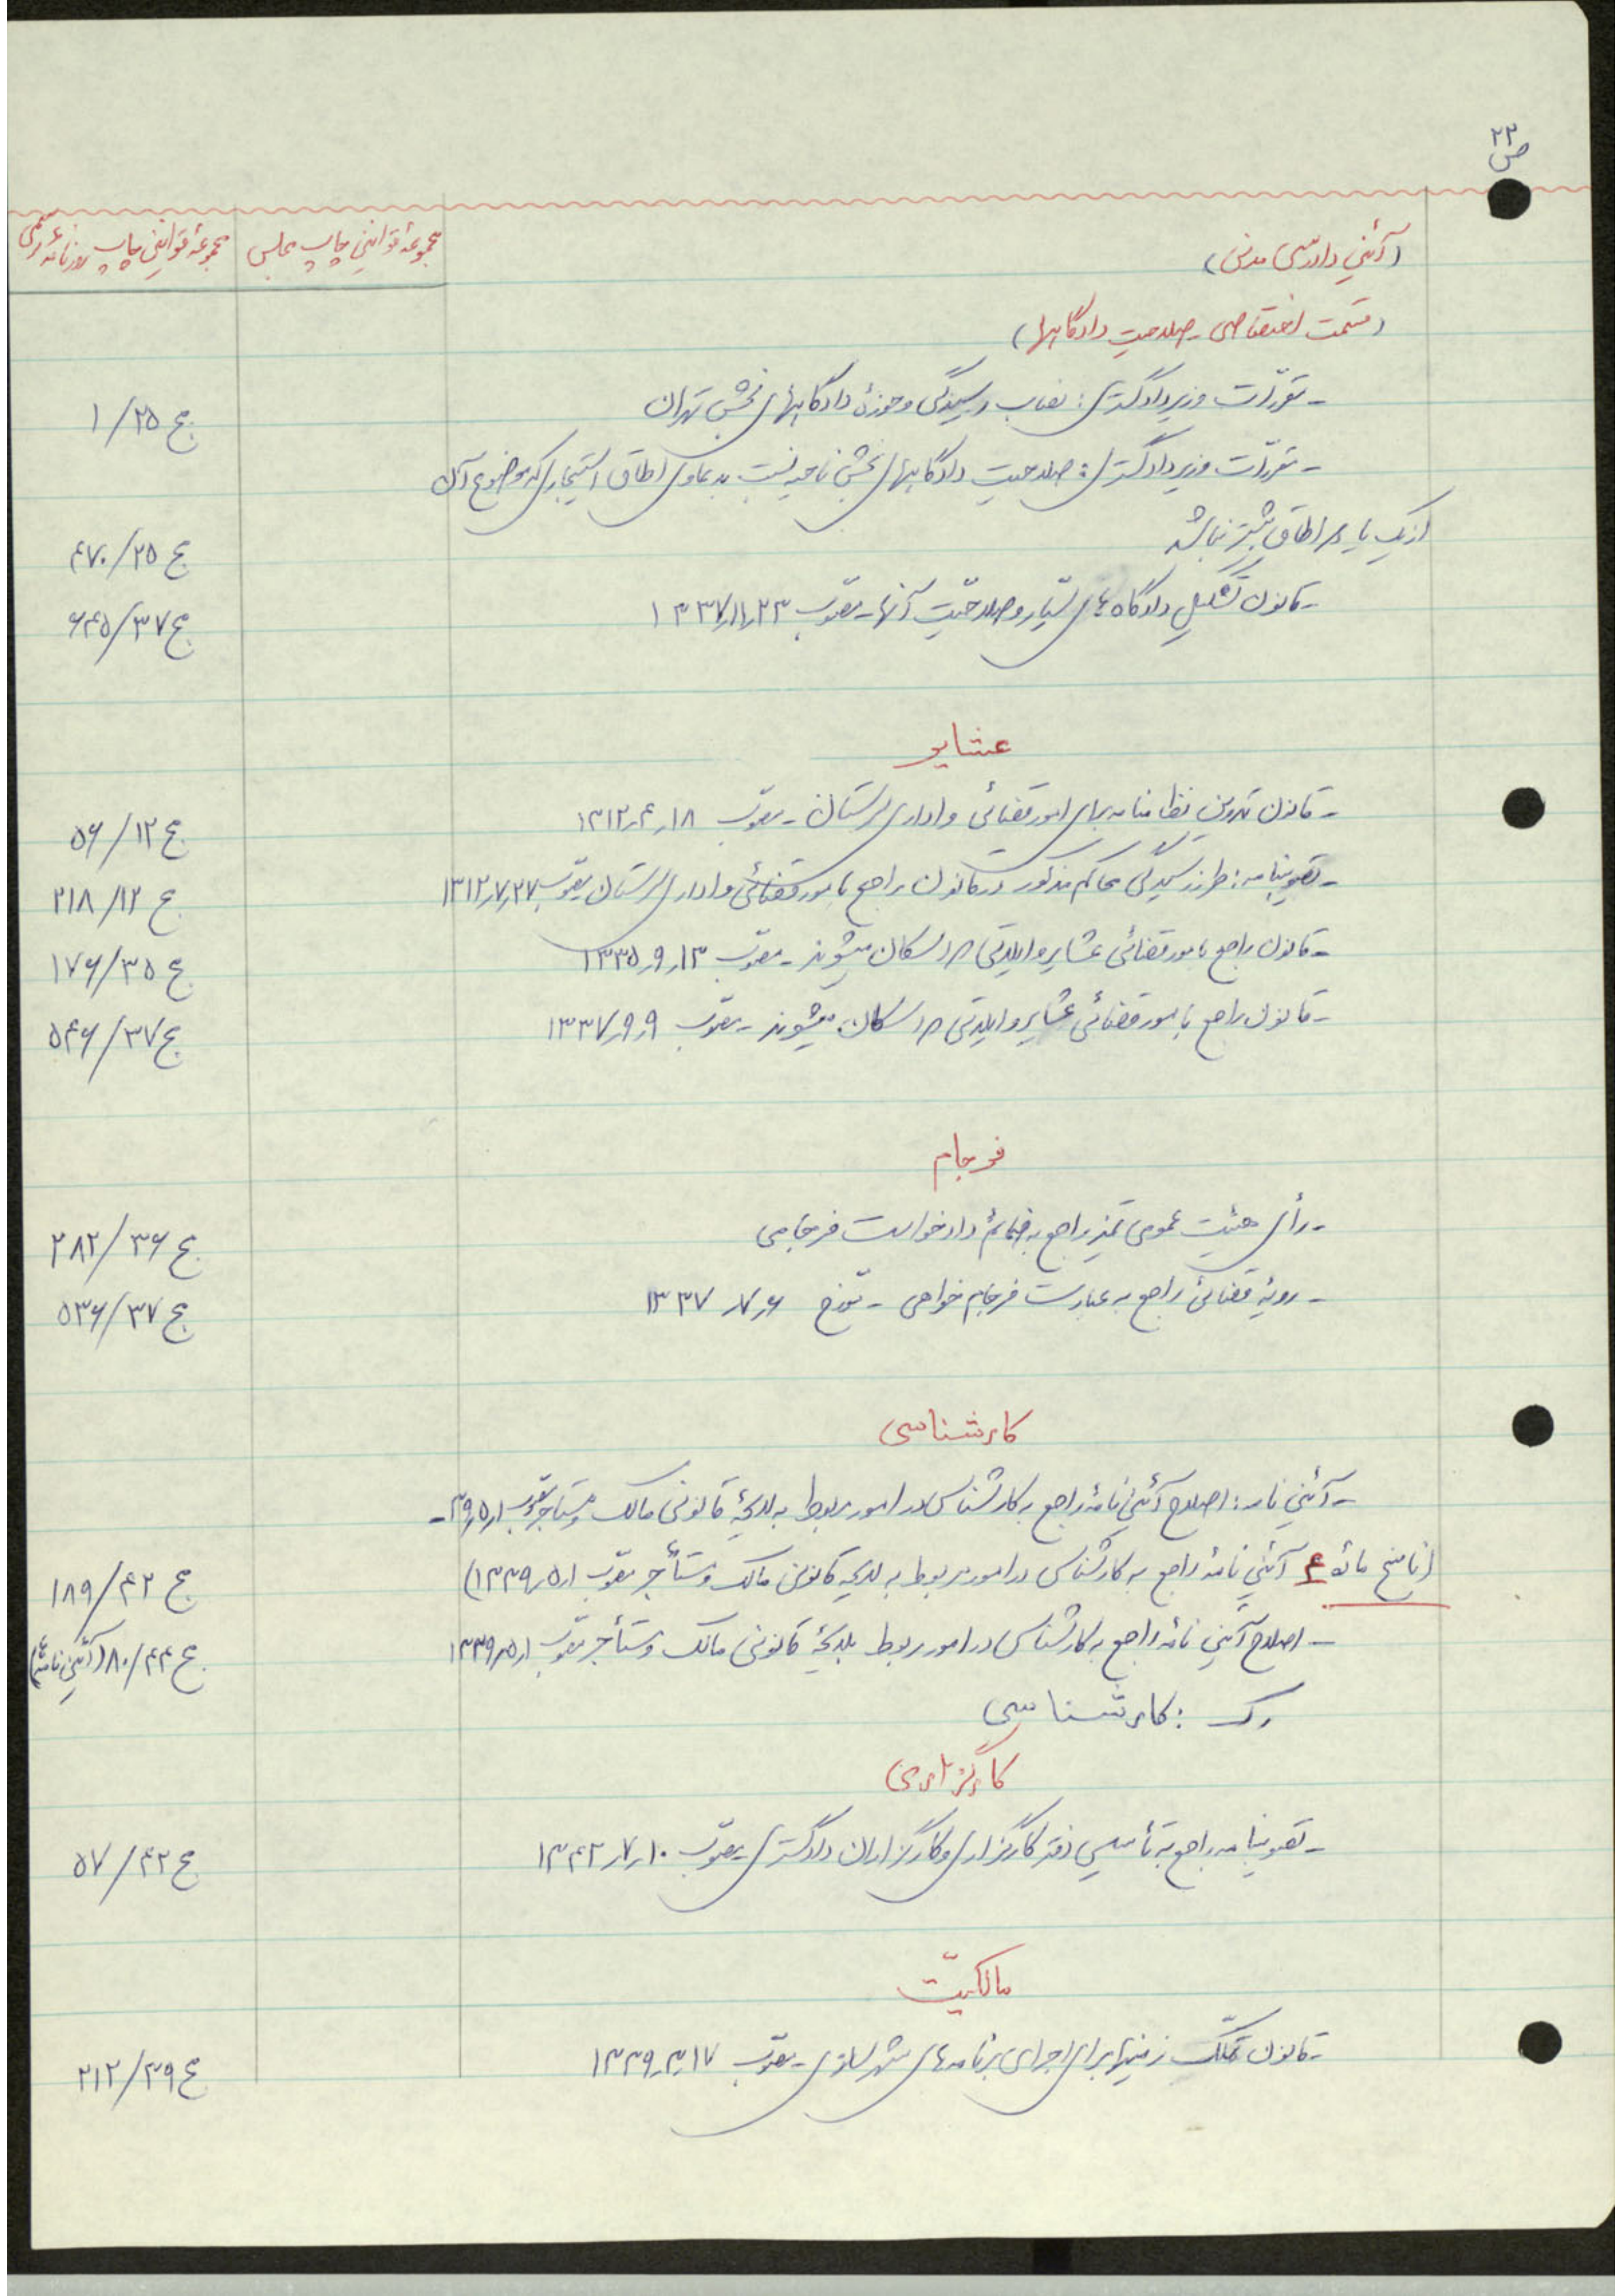 ص ۲۳
(آئین دادرسی مدنی) مجموعهٔ قوانین چاپ مجلس مجموعهٔ قوانین چاپ روزنامهٔ رسمی
(قسمت اختصاصی - صلاحیت دادگاهها)
- مقررات وزیر دادگستری: نصاب رسیدگی و حوزهٔ دادگاههای بخش تهران ج ۲۵/ ۱
- مقررات وزیر دادگستری: صلاحیت دادگاههای بخش ناحیه نسبت به دعاوی اطاق استیجاری که موضوع آن
از یک یا دو اطاق بیشتر نباشد ج ۲۵/ ۴۷۰
- قانون تشکیل دادگاه‌های سیّار و صلاحیّت آنها - مصوّب ۱۳۳۷٫۱۱٫۲۳ ج ۳۷/ ۶۴۵
عشایر
- قانون تدوین نظامنامه برای امور قضائی و اداری لرستان - مصوّب ۱۳۱۲٫۴٫۱۸ ج ۱۲/ ۵۶
- تصویبنامه: طرز رسیدگی محاکم مذکور در قانون راجع بامور قضائی و اداری لرستان مصوّب ۱۳۱۲٫۷٫۲۷ ج ۱۲/ ۲۱۸
- قانون راجع بامور قضائی عشایر و ایلاتی که اسکان میشوند - مصوّب ۱۳۳۵٫۹٫۱۳ ج ۳۵/ ۱۷۶
- قانون راجع بامور قضائی عشایر و ایلاتی که اسکان میشوند - مصوّب ۱۳۳۷٫۹٫۹ ج ۳۷/ ۵۴۶
فرجام
- رأی هیئت عمومی تمیز راجع به ضمائم دادخواست فرجامی ج ۳۶/ ۲۸۲
- رویهٔ قضائی راجع به عبارت فرجام خواهی - مورّخ ۱۳۳۷٫۷٫۶ ج ۳۷/ ۵۳۶
کارشناسی
- آئین نامه: اصلاح آئین نامهٔ راجع بکارشناسی در امور مربوط به لایحهٔ قانونی مالک و مستاجر مصوّب ۳۹٫۵٫۱ -
(ناسخ مادّهٔ ۴ آئین نامهٔ راجع به کارشناسی در امور مربوط به لایحه قانونی مالک و مستأجر مصوّب ۱۳۳۹٫۵٫۱) ج ۴۲/ ۱۸۹
- اصلاح آئین نامه راجع بکارشناسی در امور مربوط بلایحهٔ قانونی مالک و مستأجر مصوّب ۱۳۳۹٫۵٫۱ ج ۴۴/ ۸۰ (آئین نامه‌ها)
رک : کارشناسی
کارگزاری
- تصویبنامه راجع بتأسیس دفتر کارگزاری و کارگزاران دادگستری مصوّب ۱۳۴۲٫۷٫۱۰ ج ۴۲/ ۵۷
مالکیّت
- قانون تملّک زمینها برای اجرای برنامه‌های شهرسازی - مصوّب ۱۳۳۹٫۳٫۱۷ ج ۳۹/ ۲۱۲